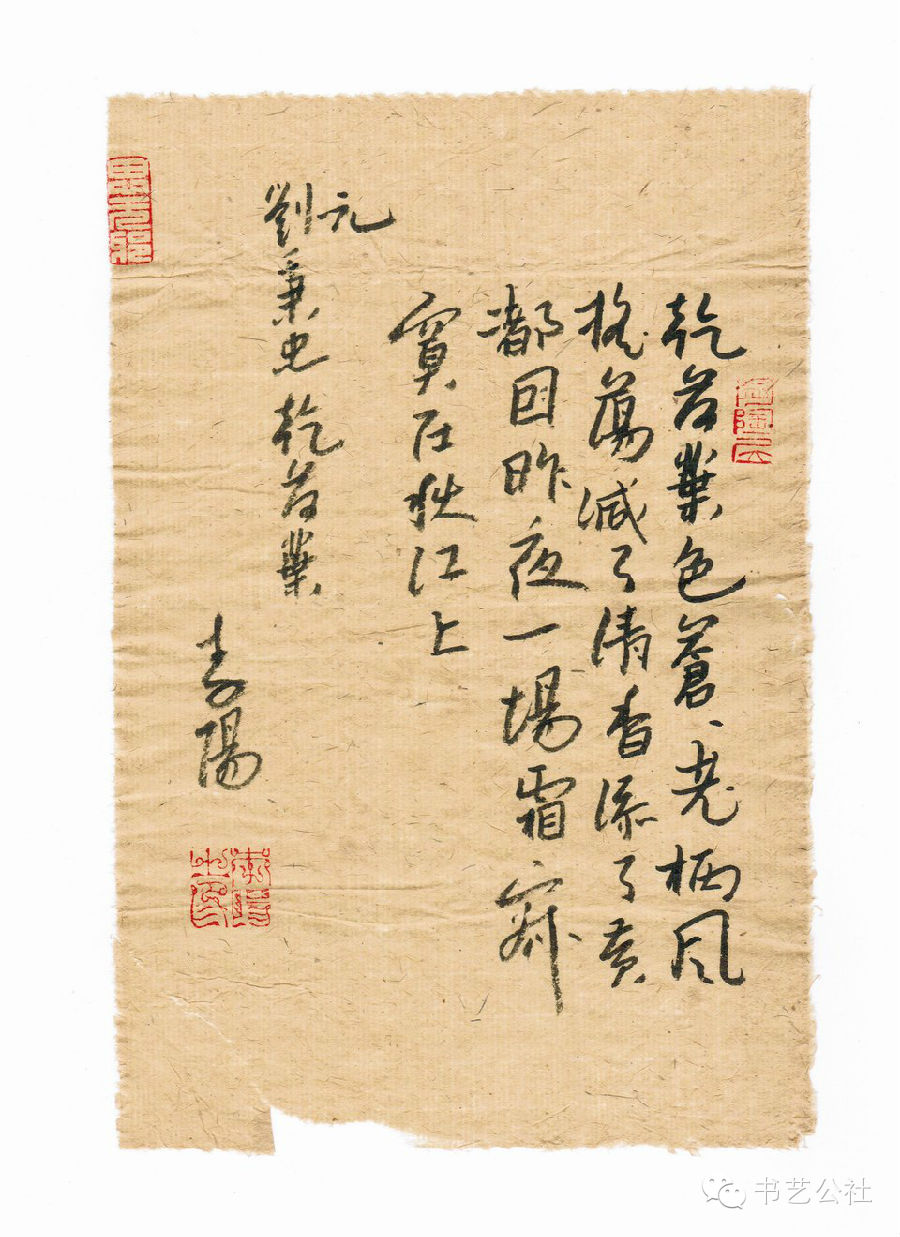 乾荷葉色蒼、老柄風
搖蕩減了清香添了黄
都因昨夜一場霜寂
寞在秋江上
元
劉秉忠乾荷葉
李陽
书艺公社